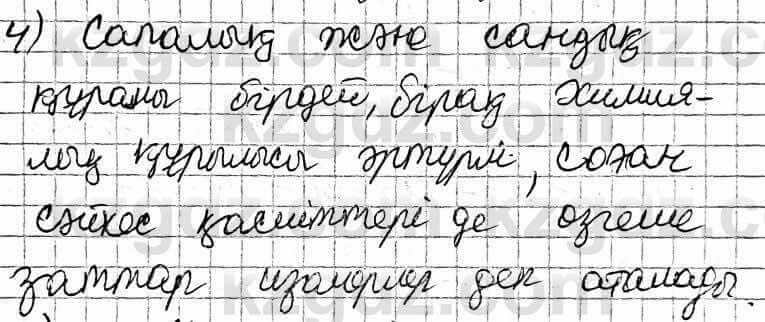 4) Сапалық және сандық
құрамы бірдей, бірақ химия-
лық құрылысы әртүрлі, соған
сәйкес қасиеттері де өзгеше
заттар изомерлер деп аталады.